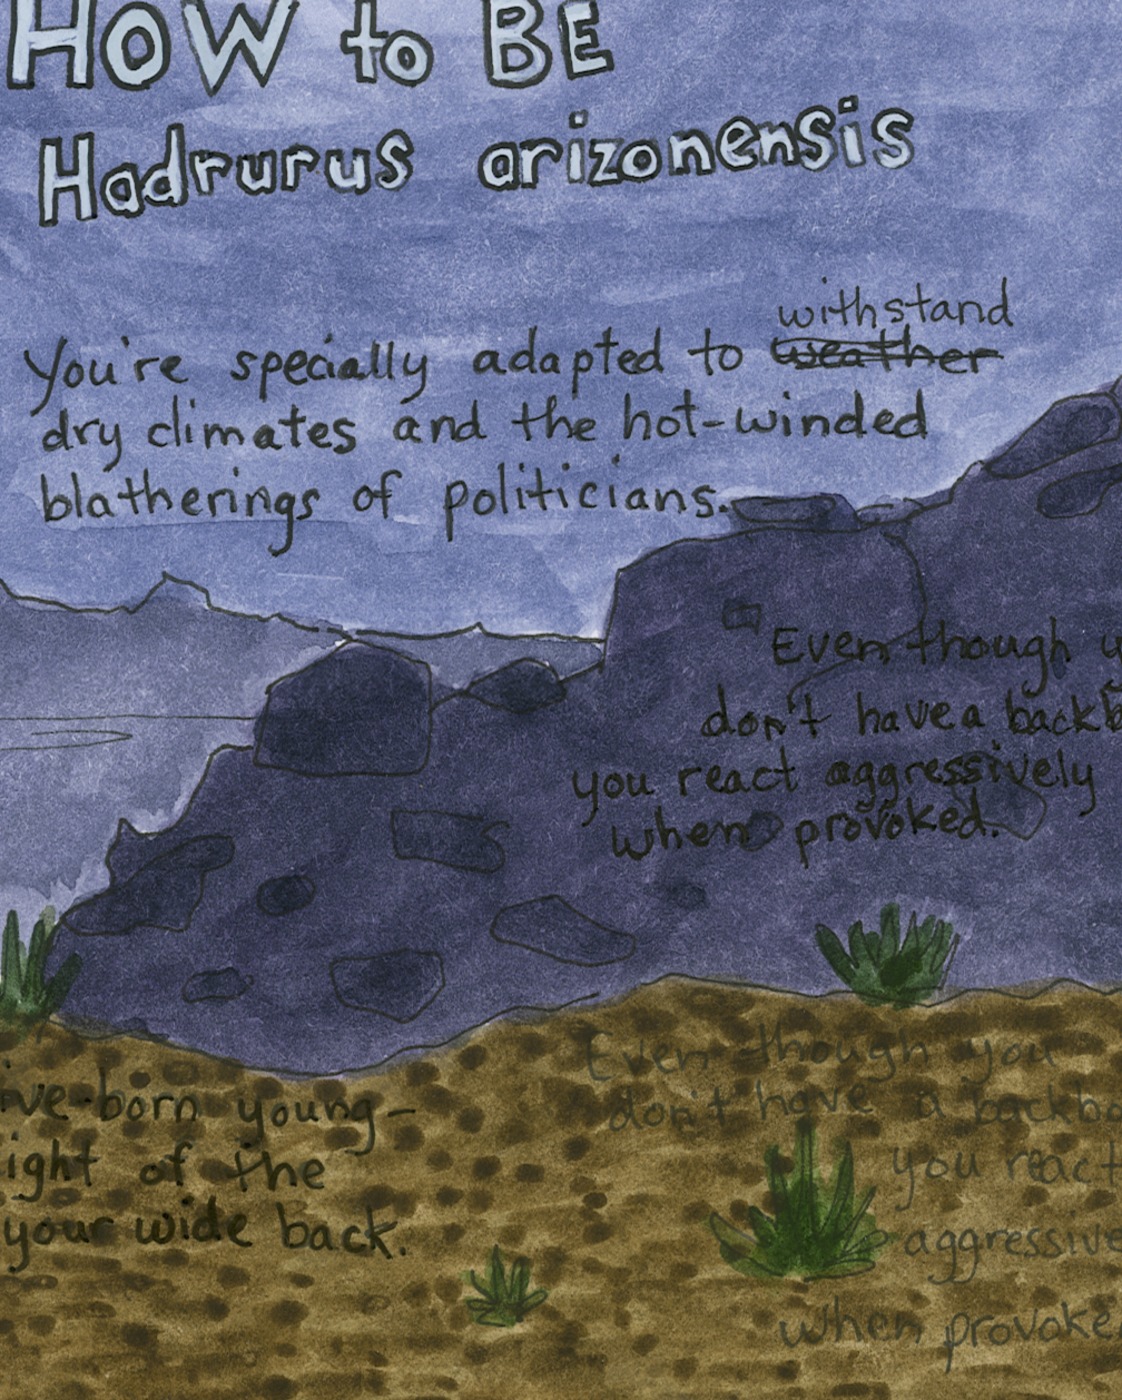 HOW to BE
Hadrurus arizonensis
withstand
You're specially adapted to weather
dry climates and the hot-winded
blatherings of politicians.
Even though y
don't have a backb
you react aggressively
when provoked.
ive-born young-
ight of the
your wide back.
Even though you
don't have a backbo
you react
aggressive
when provoke